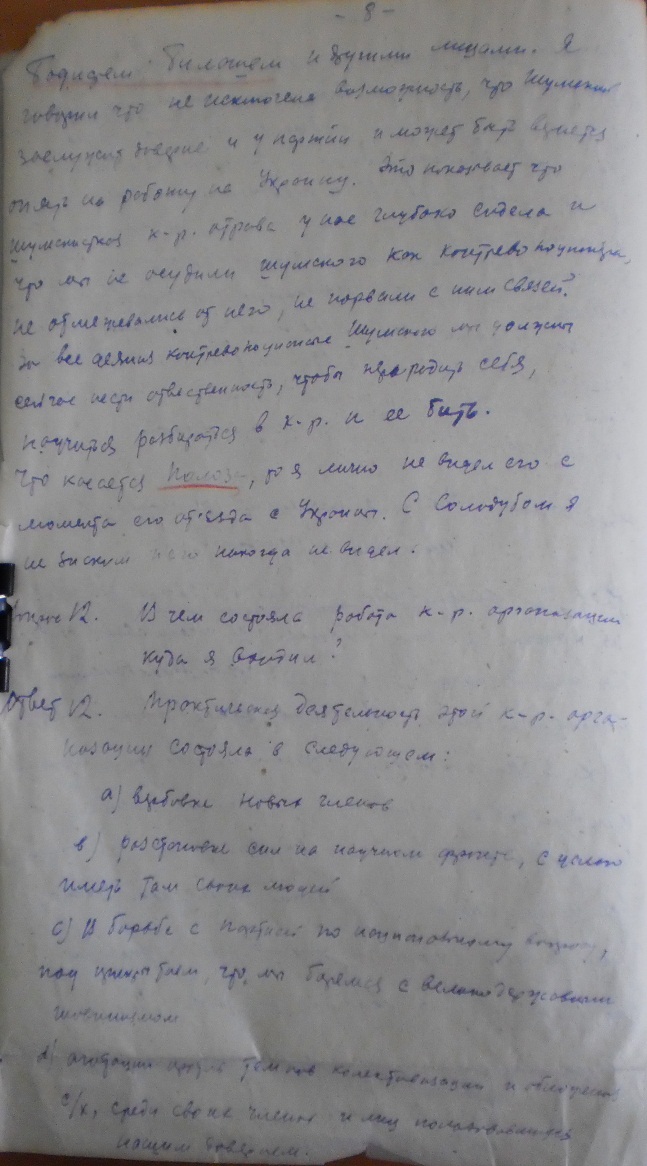 - 8 -
Бадицем Билашем и другими лицами. Я
говорил что не исключена возможность, что Шумский
заслужит доверие и у партии и может быть вернется
опять на работу на Украину. Это показывает что
шумскистская к-р. отрава у нас глубоко сидела и
что мы не осудили Шумского как контрреволюционера,
не отмежевались от него, не порвали с ним связей.
За все деяния контрреволюционные Шумского мы должны
сейчас нести ответственность, чтобы переродить себя,
научиться разбираться в к-р. и ее бить.
Что касается Полоза, то я лично не видел его с
момента его отъезда с Украины. С Солодубом я
не знаком и его никогда не видел.
Вопрос 12. В чем состояла работа к-р. организации
куда я входил?
Ответ 12. Практическая деятельность этой к-р. орга-
низации состояла в следующем:
а) вербовке новых членов
в) расстановке сил на научном фронте, с целью
иметь там своих людей
с) В борьбе с партией по национальному вопросу,
под прикрытием, что мы боремся с великодержавным
шовинизмом
d) агитации против темпов колективизации и
с/х, среди своих членов и лиц пользовавшихся
нашим доверием.